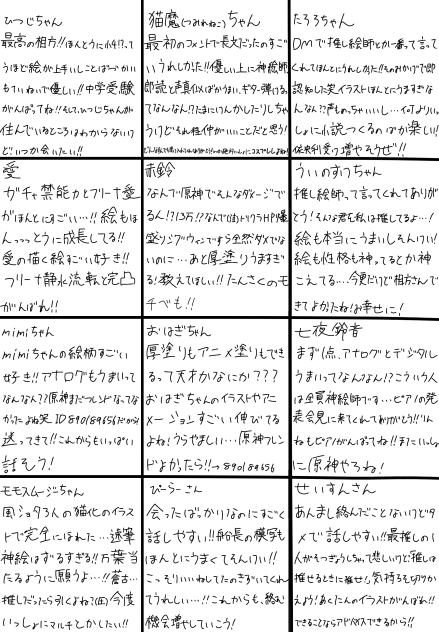 ひつじちゃん
最高の相方!!ほんとうに小4!?って
うほど絵が上手いしことばづかい
もていねいで優しい!!中学受験
がんばってね!!そして、ひつじちゃんが
住んでいるところはわからないけ
ど、いつか会いたい!!
猫魔(つみれねこ)ちゃん
最初のコメントで長文だったのすご
いうれしかった!!優しい上に神絵師
てなんなん!?たまにけんかしたりしちゃ
うけどそん位仲がいいことだと思う!
たろろちゃん
DMで推し絵師とか一番って言って
くれてほんとにうれしかった!!そのおかげで即
認ねした笑イラストほんとにうますぎな
んなん??声もめっちゃいいし…何よりいっ
しょに小説つくるのばか楽しい!
愛
ガチャ禁能力とフリーナ愛
がほんとにすごい…!!絵もほ
んっっっとうに成長してる!!
愛の描く絵すごい好き!!
フリーナ静水流転と完凸
がんばれ!!
赤鈴
なんで原神でそんなダメージで
る人!?(13万!!)なんで(ほ)ドゥラHP爆
盛りジグウィンですら全然ダメでな
いのに…あと厚塗りうますぎ
る!教えてほしい!!たんさくのモ
チベも!!
ういのすけちゃん
推し絵師って言ってくれてありが
とう!そんな君を私は推してるよ…!
絵も本当にうまいしそんけい!
絵も性格も神ってるとか神
こえてる…今更だけど相方さんで
きてよかったね!お幸せに!
mimiちゃん
mimiちゃんの絵柄すごい
好き!!アナログもうまいって
なんなん??原神まだフレンドなってな
かったよね笑 ID890189656だから
送ってきて!!これからもいっぱい
話そう!
おはぎちゃん
厚塗りもアニメ塗りもでき
るって天才かなにか???
おはぎちゃんのイラストやアニ
メーションすごい伸びてる
よね!うらやましい…原神フレン
ドよかったら!!→890189656
七夜鈴音
まず1点、アナログとデジタル
うまいってなんなん!?こういう人
は全員神絵師です…ピアノの発
表会見に来てくれてありがとう!!りん
ねもピアノがんばってね!!またいっしょ
に原神やろね!
モモスムージちゃん
国ショタ3人の猫化のイラス
トで完全にほれた…速筆
神絵はずるすぎる!!万葉当
たるように願うよ…!!蒼古…
推しだったら引くよね?(圧)今度
いっしょにマルチとかしたい!!
ぴーらーさん
会ったばっかりなのにすごく
話しやすい!!船長の模写も
ほんとにうまくてそんけい!!
こっそりいいねしてたのきづいてくれ
てうれしい…!!これからも、絡む
機会増やしていこう!
せいすんさん
あんまし絡んだことないけどタ
メで話しやすい!!最推しの1
人がそつぎょうしちゃって悲しいけど、推しは
推せるときに推せ!気持ち切りか
えよう!あくたんのイラストがんばれ!!
できることならアドバイスできるから!!